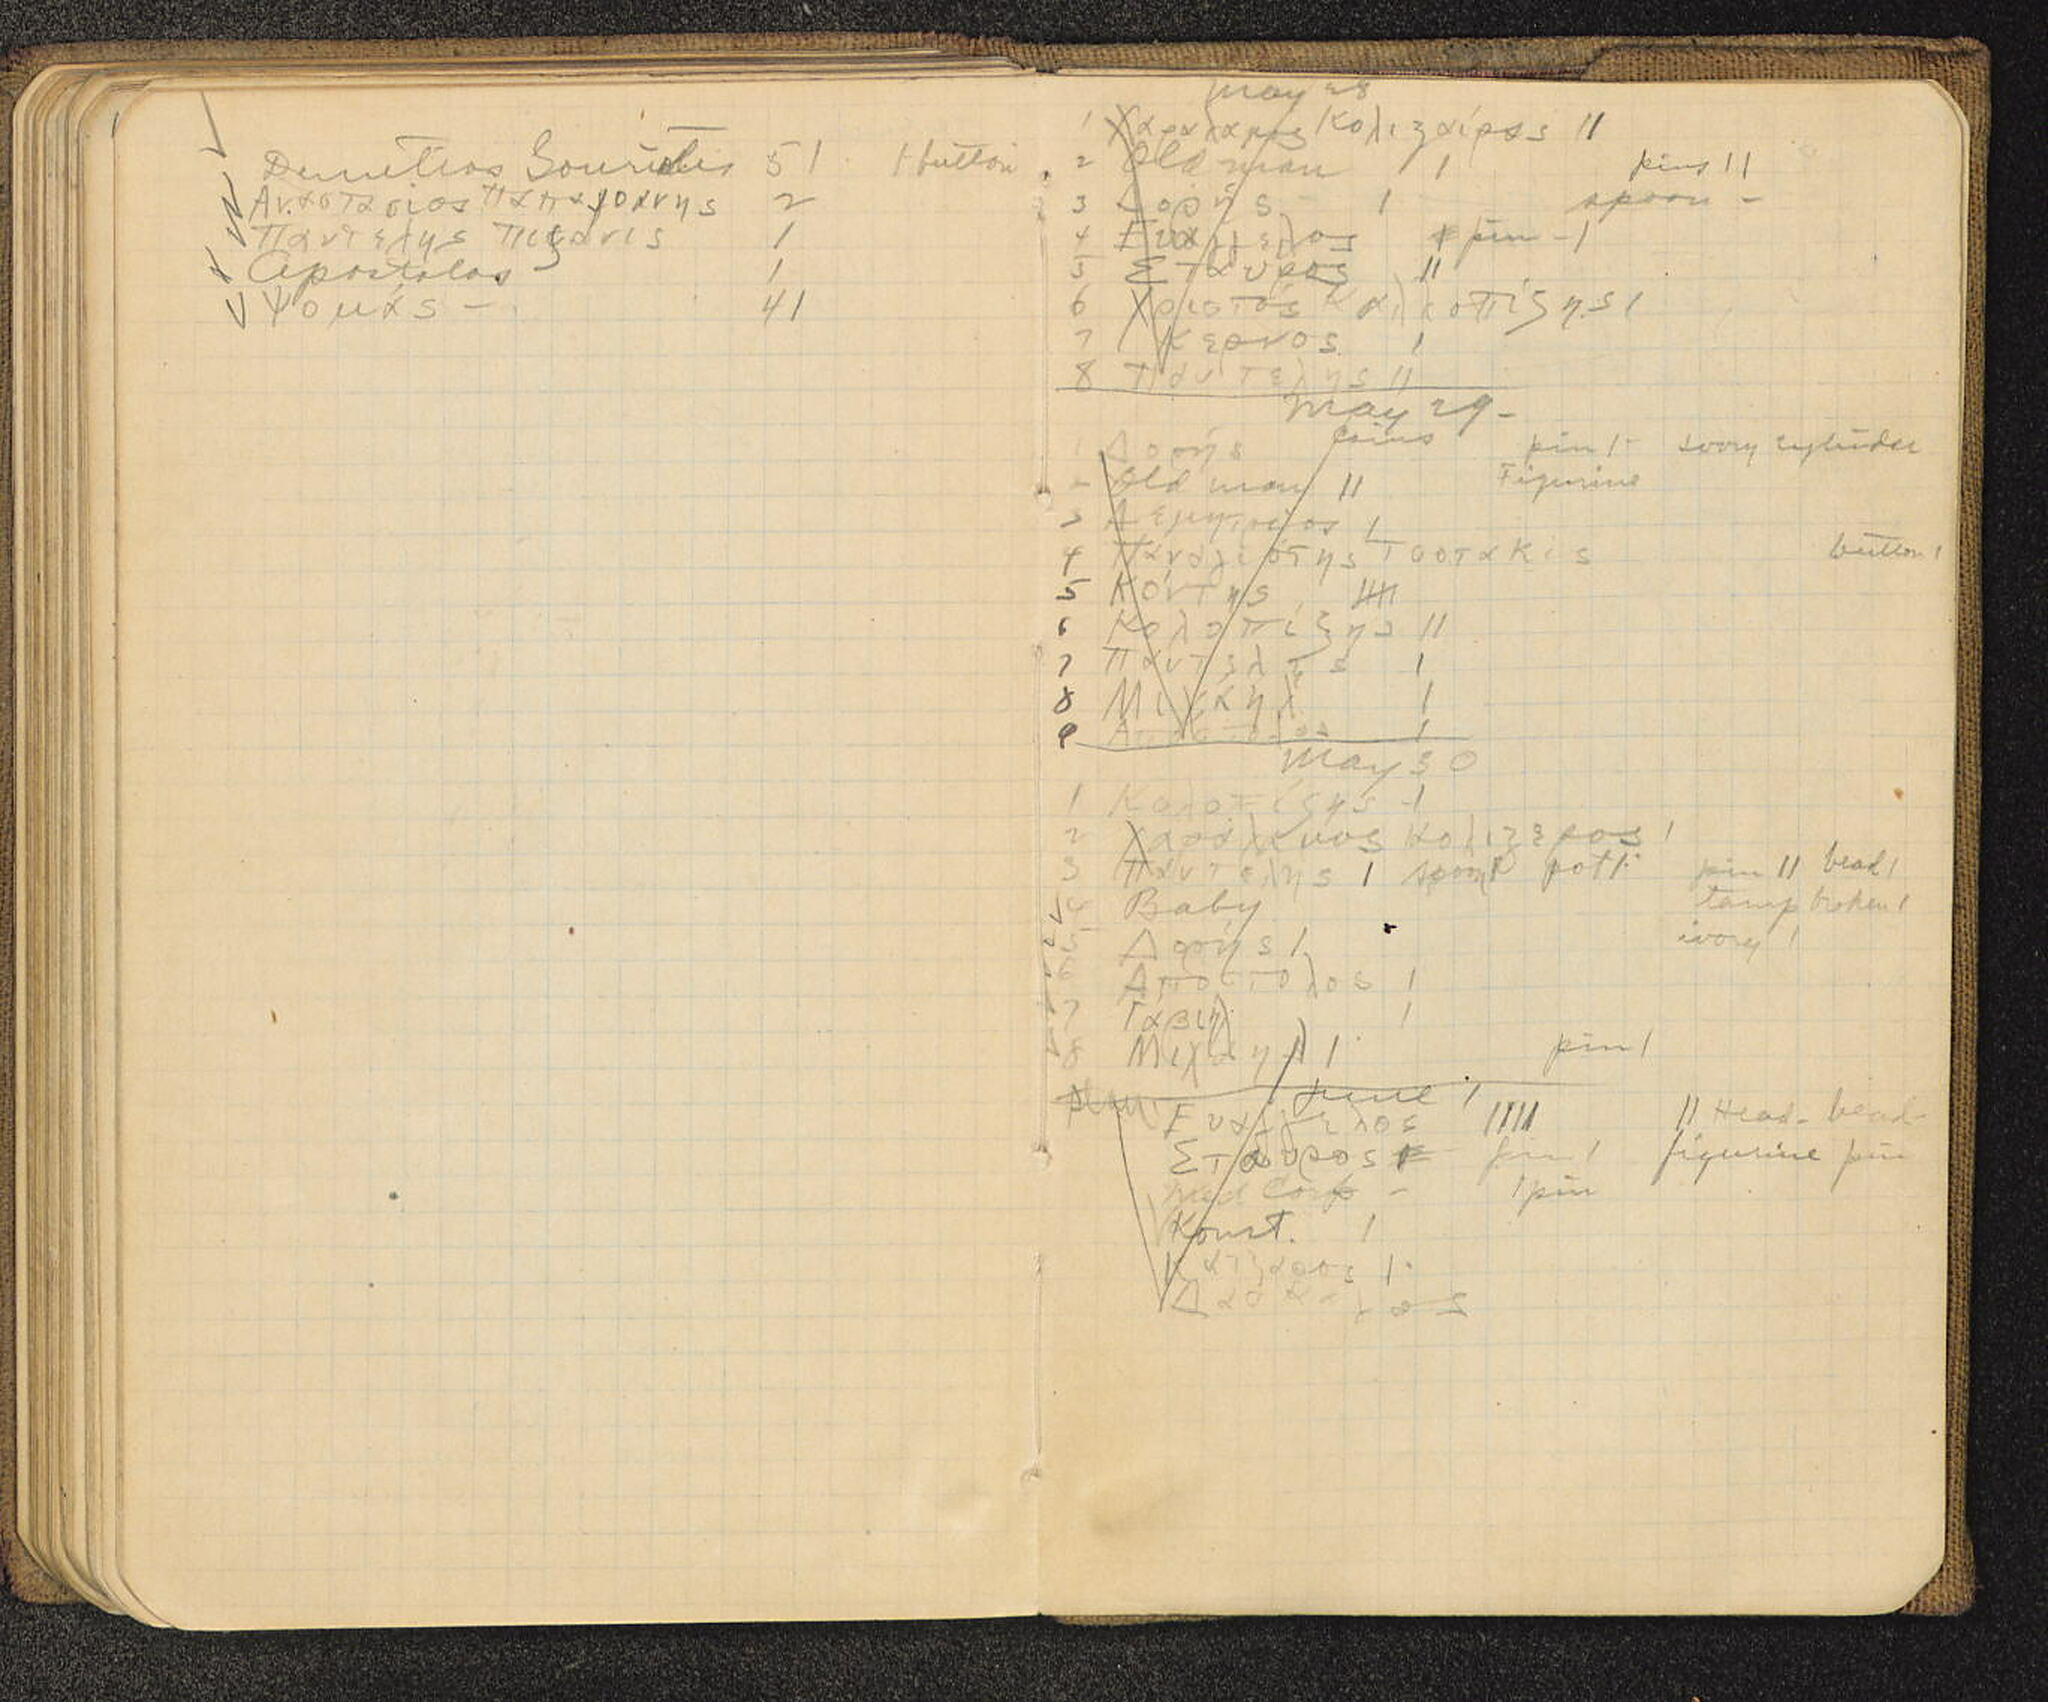 Demetrios 51 1 button
Αναστασιος Παπαγοανης 2
Παντελης Πιζανις 1
Apostolos 1
Ψομάς - 41
May 28
1 Χαραλαμπος Κολιζαίρος II
2 Old man 1 1 pins II
3 Δορής - 1 spoon -
4 Ευαγγελος pin - 1
5 Σταυρος II
6 Χριστός Καλκοπίζης 1
7 Κερνος 1
8 Παντελης II
May 29 -
1 Δορής Coins pin 1 - Ivory cylinder
2 Old man II Figurine
3 Δεμητριος 1
4 Παναγιότης Τσοτακις button 1
5 Κόντης IIII
6 Κολοπίζης II
7 Παντελης 1
8 Μιχαήλ 1
9 Αποστολος 1
May 30
1 Κολοπίζης -1
2 Χαραλαμος Κολιζερος 1
3 Παντελης 1 spoon pott. pin II bead 1
4 Baby broken 1
5 Δορής 1 ivory 1
6 Αποστολος 1
7 Γαβιηλ 1
8 Μιχαηλ 1 pin 1
June 1
Ευαγγελος IIIII II Head - bead -
Σταυρος pin 1 figurine pin
Med Corp - 1 pin
Konst. 1
Κατζαρος 1
Δασκαλος